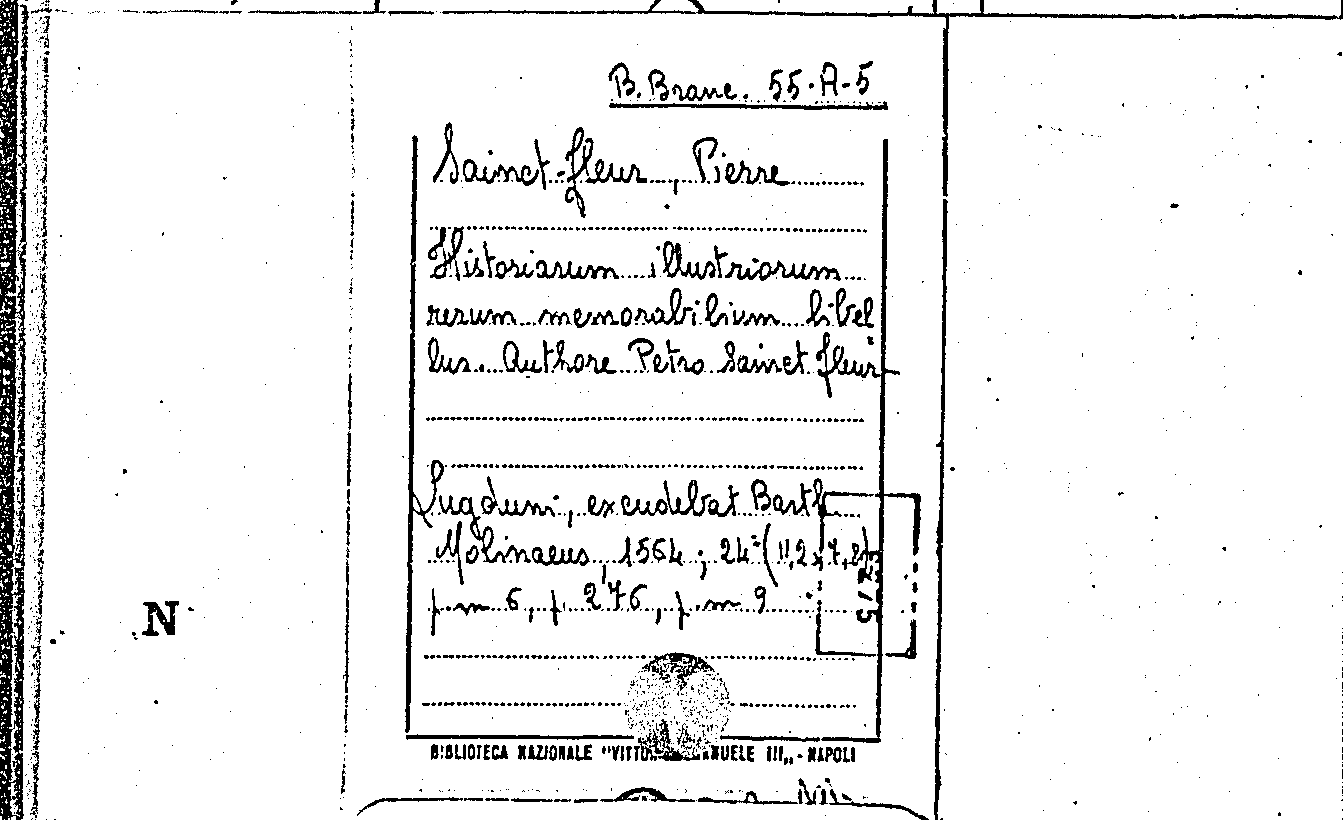 B. Branc. 55-A-5
Sainct-fleur, Pierre
Historiarum illustriorum
rerum memorabilium libel
lus. Authore Petro Sainct fleur
Lugduni, excudebat Barth
Molinaeus, 1564; 24°(11,2x7,2)
p.m 6, p. 276, p.m 9
N
BIBLIOTECA NAZIONALE "VITTORIO EMANUELE III„ - NAPOLI